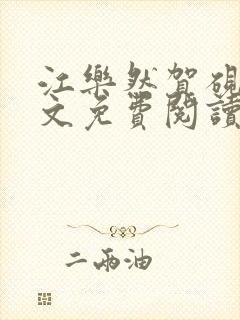 江樂然賀硯
文免費閱讀
二兩油